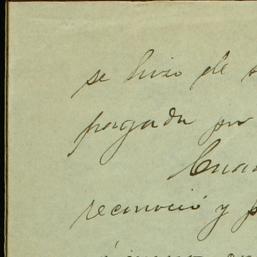 se hizo de
pagada por
Cuan
reconoció y p